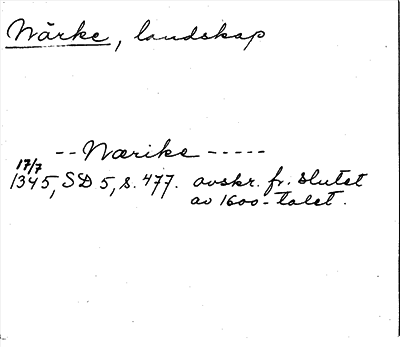 Närke, landskap
-- Nærike -----
17/7
1345, SD 5, s. 477. avskr. fr. slutet
av 1600-talet.